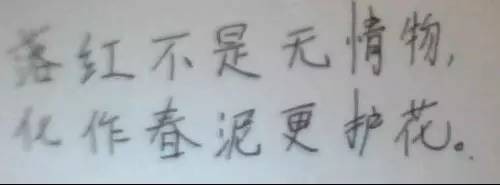 落红不是无情物,
化作春泥更护花。